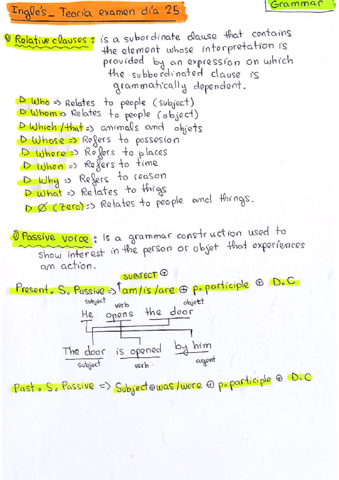 Inglés_ Teoría examen día 25
Grammar
① Relative clauses: is a subordinate clause that contains
the element whose interpretation is
provided by an expression on which
the subbordinated clause is
grammatically dependent.
▷ Who => Relates to people (subject)
▷ Whom => Relates to people (object)
▷ Which/that => animals and objets
▷ Whose => Refers to possesion
▷ Where => Refers to places
▷ When => Refers to time
▷ Why => Refers to reason
▷ What => Relates to things
▷ Ø (zero) => Relates to people and things.
② Passive voice: is a grammar construction used to
show interest in the person or objet that experiences
an action.
SUBJECT ⊕
Present. S. Passive => am/is/are ⊕ p.participle ⊕ D.C
subject verb objekt
He opens the door
The door is opened by him
subject verb agent
Past. S. Passive => Subject ⊕ was/were ⊕ p.participle ⊕ D.C